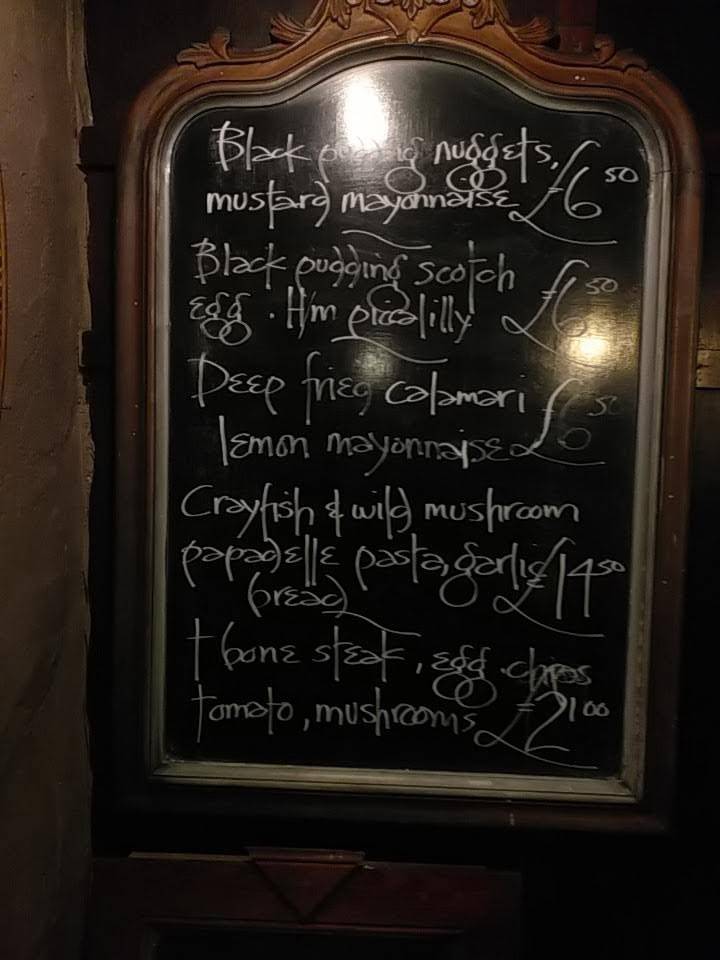 Black pudding nuggets,
mustard mayonnaise £6 50
Black pudding scotch
egg . H/m piccalilly £6 50
Deep fried calamari
lemon mayonnaise £6 50
Crayfish & wild mushroom
papadelle pasta, garlic £14 50
bread
T bone steak, egg . chips
tomato, mushrooms £21 00